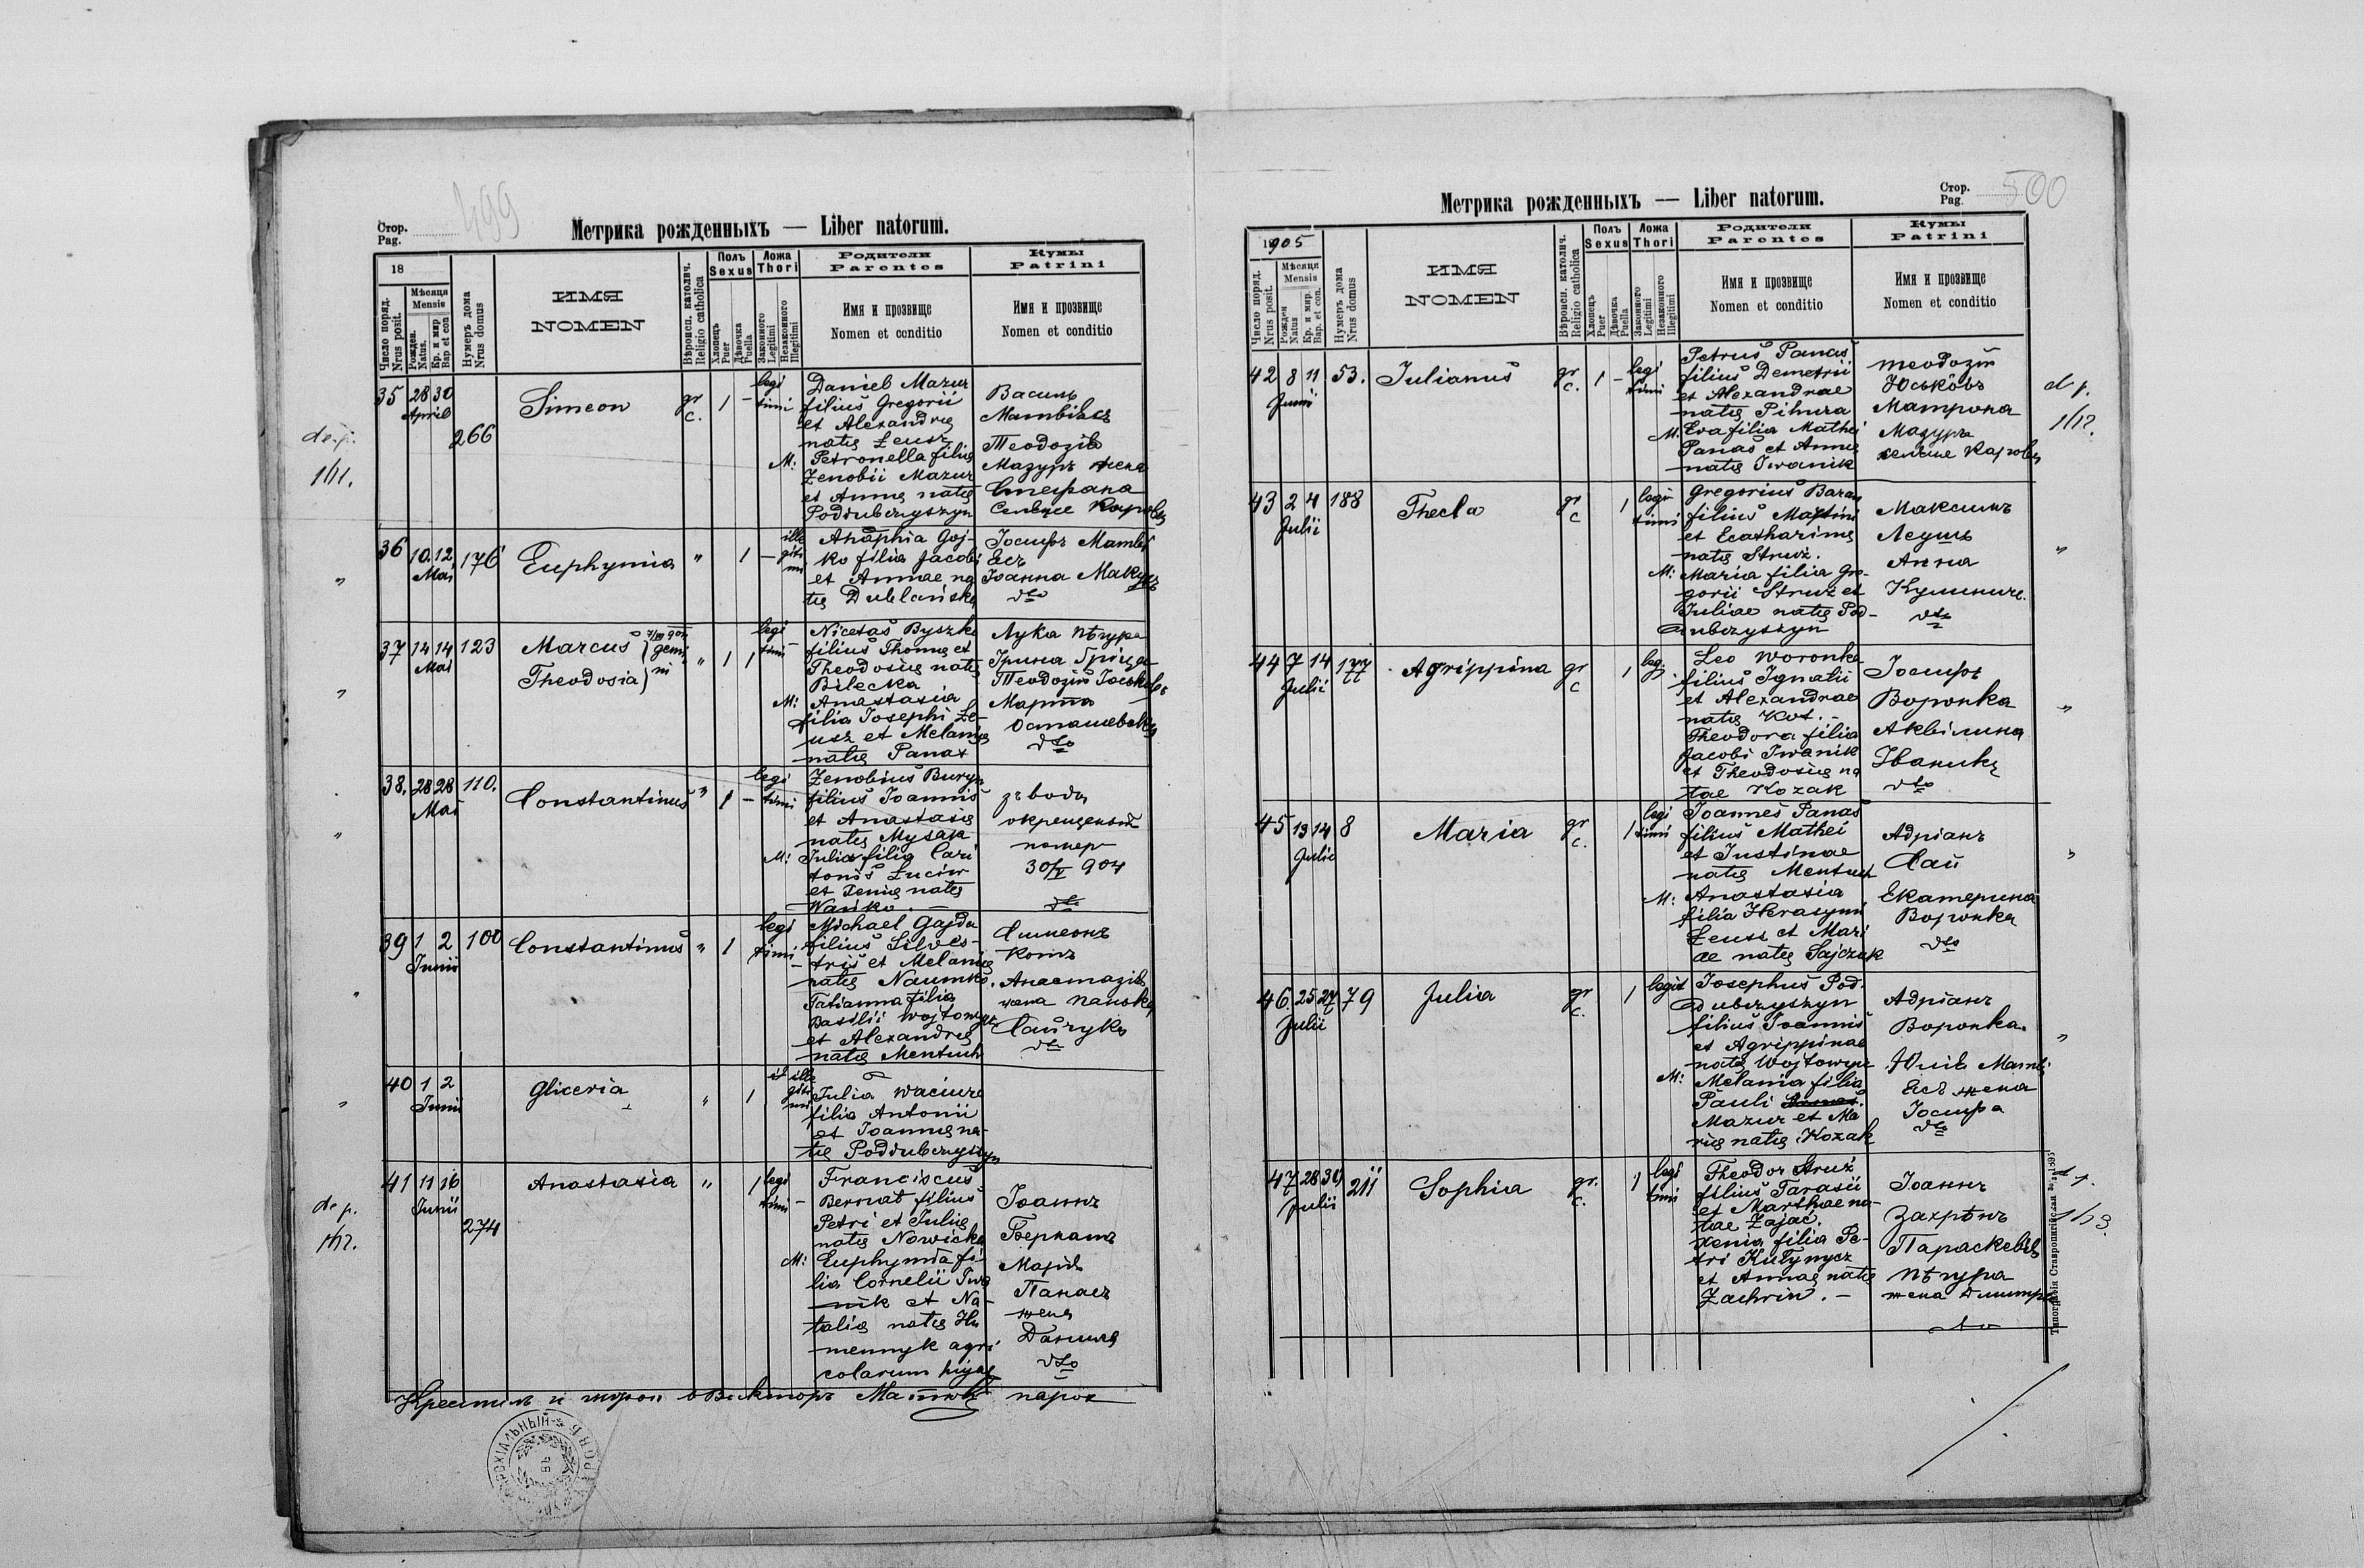 499
Стор.
Pag.
Метрика рожденныхъ — Liber natorum.
18
Число поряд.
Nrus posit.
Мѣсяця
Mensis
Рожден.
Natus.
Кр. и мир
Bap et con
Нумеръ дома
Nrus domus
ИМЯ
NOMEN
Вѣроисп. католич.
Religio catholica
Полъ
Sexus
Хлопецъ
Puer
Дѣвочка
Puella
Ложа
Thori
Законного
Legitimi
Незаконного
Illegitimi
Родители
Parentes
Имя и прозвище
Nomen et conditio
Кумы
Patrini
Имя и прозвище
Nomen et conditio
35 28 30
April
266
Simeon
gr
c.
1 –
legi
timi
Daniel Mazur
filius Gregorii
et Alexandrę
natę Łeusz
M: Petronella filia
Zenobii Mazur
et Annę natę
Poddubczyszyn
Василь
Теодозія
Мазуръ жена
Стефана
36 10 12 176
Mai
Euphymia
" 1 –
ille
giti
mi
Anaphia Goj-
ko filia Jacobi
et Annae na
tę Dublańska
Іосифъ
Іоанна
dto
37 14 14 123
Mai
Marcus
Theodosia
gemi
ni
" 1 1
legi
timi
Nicetas Byszko
filius Thomę et
Theodosię natę
Bilecka
M: Anastasia
filia Josephi Łe-
usz et Melanię
natę Panas
Лука Пѣгура
Ірина
Теодозій
Марта
Осташевска
dto
38. 28 28 110.
Mai
Constantinus
" 1 –
legi
timi
Zenobius Buryn
filius Joannis
et Anastasię
natę Mysak
M: Julia filia Cari
tonis Łuciw
et Xenię natę
Wańko. –
зъ воды
окрещеный
помер
30/V 904
39 1 2 100
Junii
Constantinus
" 1
legi
timi
Michael Gajda
filius Silves-
tris et Melanię
natę Naumko.
Tatianna filia
Basilii Wojtowycz
et Alexandrę
natę Mentuch
Симеонъ
Котъ
Анастазія
жена Панька
dto
40 1 2
Junii
Gliceria
" 1
ille
giti
mi
Julia Waciura
filia Antonii
et Joannę na-
tę Poddubczyszyn
41 11 16
Junii
274
Anastasia
" 1
legi
timi
Franciscus
Bernat filius
Petri et Julię
natę Nowicka
M: Euphymia fi-
lia Cornelii Iwa
nik et Na-
talię natę Hu
mennyk agri
colarum hujas
Іоаннъ
Бернатъ
Марія
Панасъ
жена
Данила
dto
Крестилъ и миров о Викторъ парох
500
Стор.
Pag.
Метрика рожденныхъ — Liber natorum.
1905
Число поряд.
Nrus posit.
Мѣсяця
Mensis
Рожден
Natus
Кр. и мир.
Bap. et con.
Нумеръ дома
Nrus domus
ИМЯ
NOMEN
Вѣроисп. католич.
Religio catholica
Полъ
Sexus
Хлопецъ
Puer
Дѣвочка
Puella
Ложа
Thori
Законного
Legitimi
Незаконного
Illegitimi
Родители
Parentes
Имя и прозвище
Nomen et conditio
Кумы
Patrini
Имя и прозвище
Nomen et conditio
42 8 11 53.
Junii
Julianus
gr
c.
1 –
legi
timi
Petrus Panas
filius Demetrii
et Alexandrae
natę Pihura
M. Eva filia Mathei
Panas et Annę
natę Iwanik
Теодозій
Юськôвъ
Матрона
Мазуръ
43 2 4 188
Julii
Thecla
gr
c
1
legi
timi
Gregorius Baran
filius Martini
et Ecatharinę
natę Struż.
M: Maria filia Gre-
gorii Struż et
Juliae natę Pod-
dubczyszyn
Максимъ
Леушъ
Анна
dto
44 7 14 177
Julii
Agrippina
gr
c
1
leg.
Leo Woronka
filius Ignatii
et Alexandrae
natę Kot. –
Theodora filia
Jacobi Iwanik
et Theodosię na
tae Kozak
Іосифъ
Воронка
Аквілина
Іваникъ
dto
45 13 14 8
Julii
Maria
gr
c.
1
legi
timi
Joannes Panas
filius Mathei
et Justinae
natę Mentuch
M: Anastasia
filia Herasymi
Łeusz et Mari
ae natę Sajczuk
Адріанъ
Сай
Екатерина
Воронка
dto
46. 25 27 79
Julii
Julia
gr
c.
1
legit
Josephus Pod-
dubczyszyn
filius Joannis
et Agrippinae
natę Wojtowycz
M: Melania filia
Pauli
Mazur et Ma
rię natę Kozak
Адріанъ
Воронка.
жена
Іосифа
dto
47 28 30 211
Julii
Sophia
gr.
c.
1
legi
timi
Theodor Struż
filius Tarasii
et Marthae na-
tae Zajac.
Xenia filia Pe-
tri Kutynycz
et Annae natę
Zachrin. –
Іоаннъ
Захрѣнъ
Параскевія
Пѣгура
жена Димитрія
dto
Типографія Ставропигійская